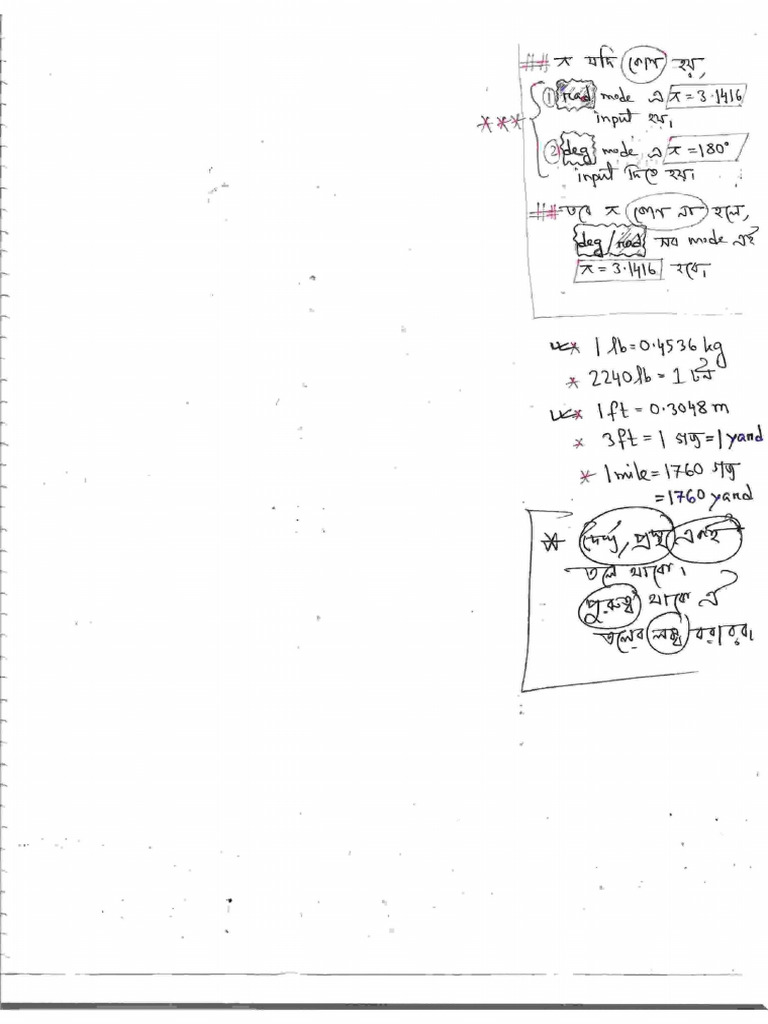 ## π যদি কোণ হয়,
① rad mode এ π = 3.1416
input হয়।
*** 
② deg mode এ π = 180°
input দিতে হয়।
## তবে π কোণ না হলে,
deg/rad সব mode এই
π = 3.1416 হবে।
* 1 lb = 0.4536 kg
* 2240 lb = 1 টন
* 1 ft = 0.3048 m
* 3 ft = 1 গজ = 1 yard
* 1 mile = 1760 গজ
= 1760 yard
* দৈর্ঘ্য, প্রস্থ একই
তলে থাকে।
পুরুত্ব থাকে ঐ
তলের লম্ব বরাবর।